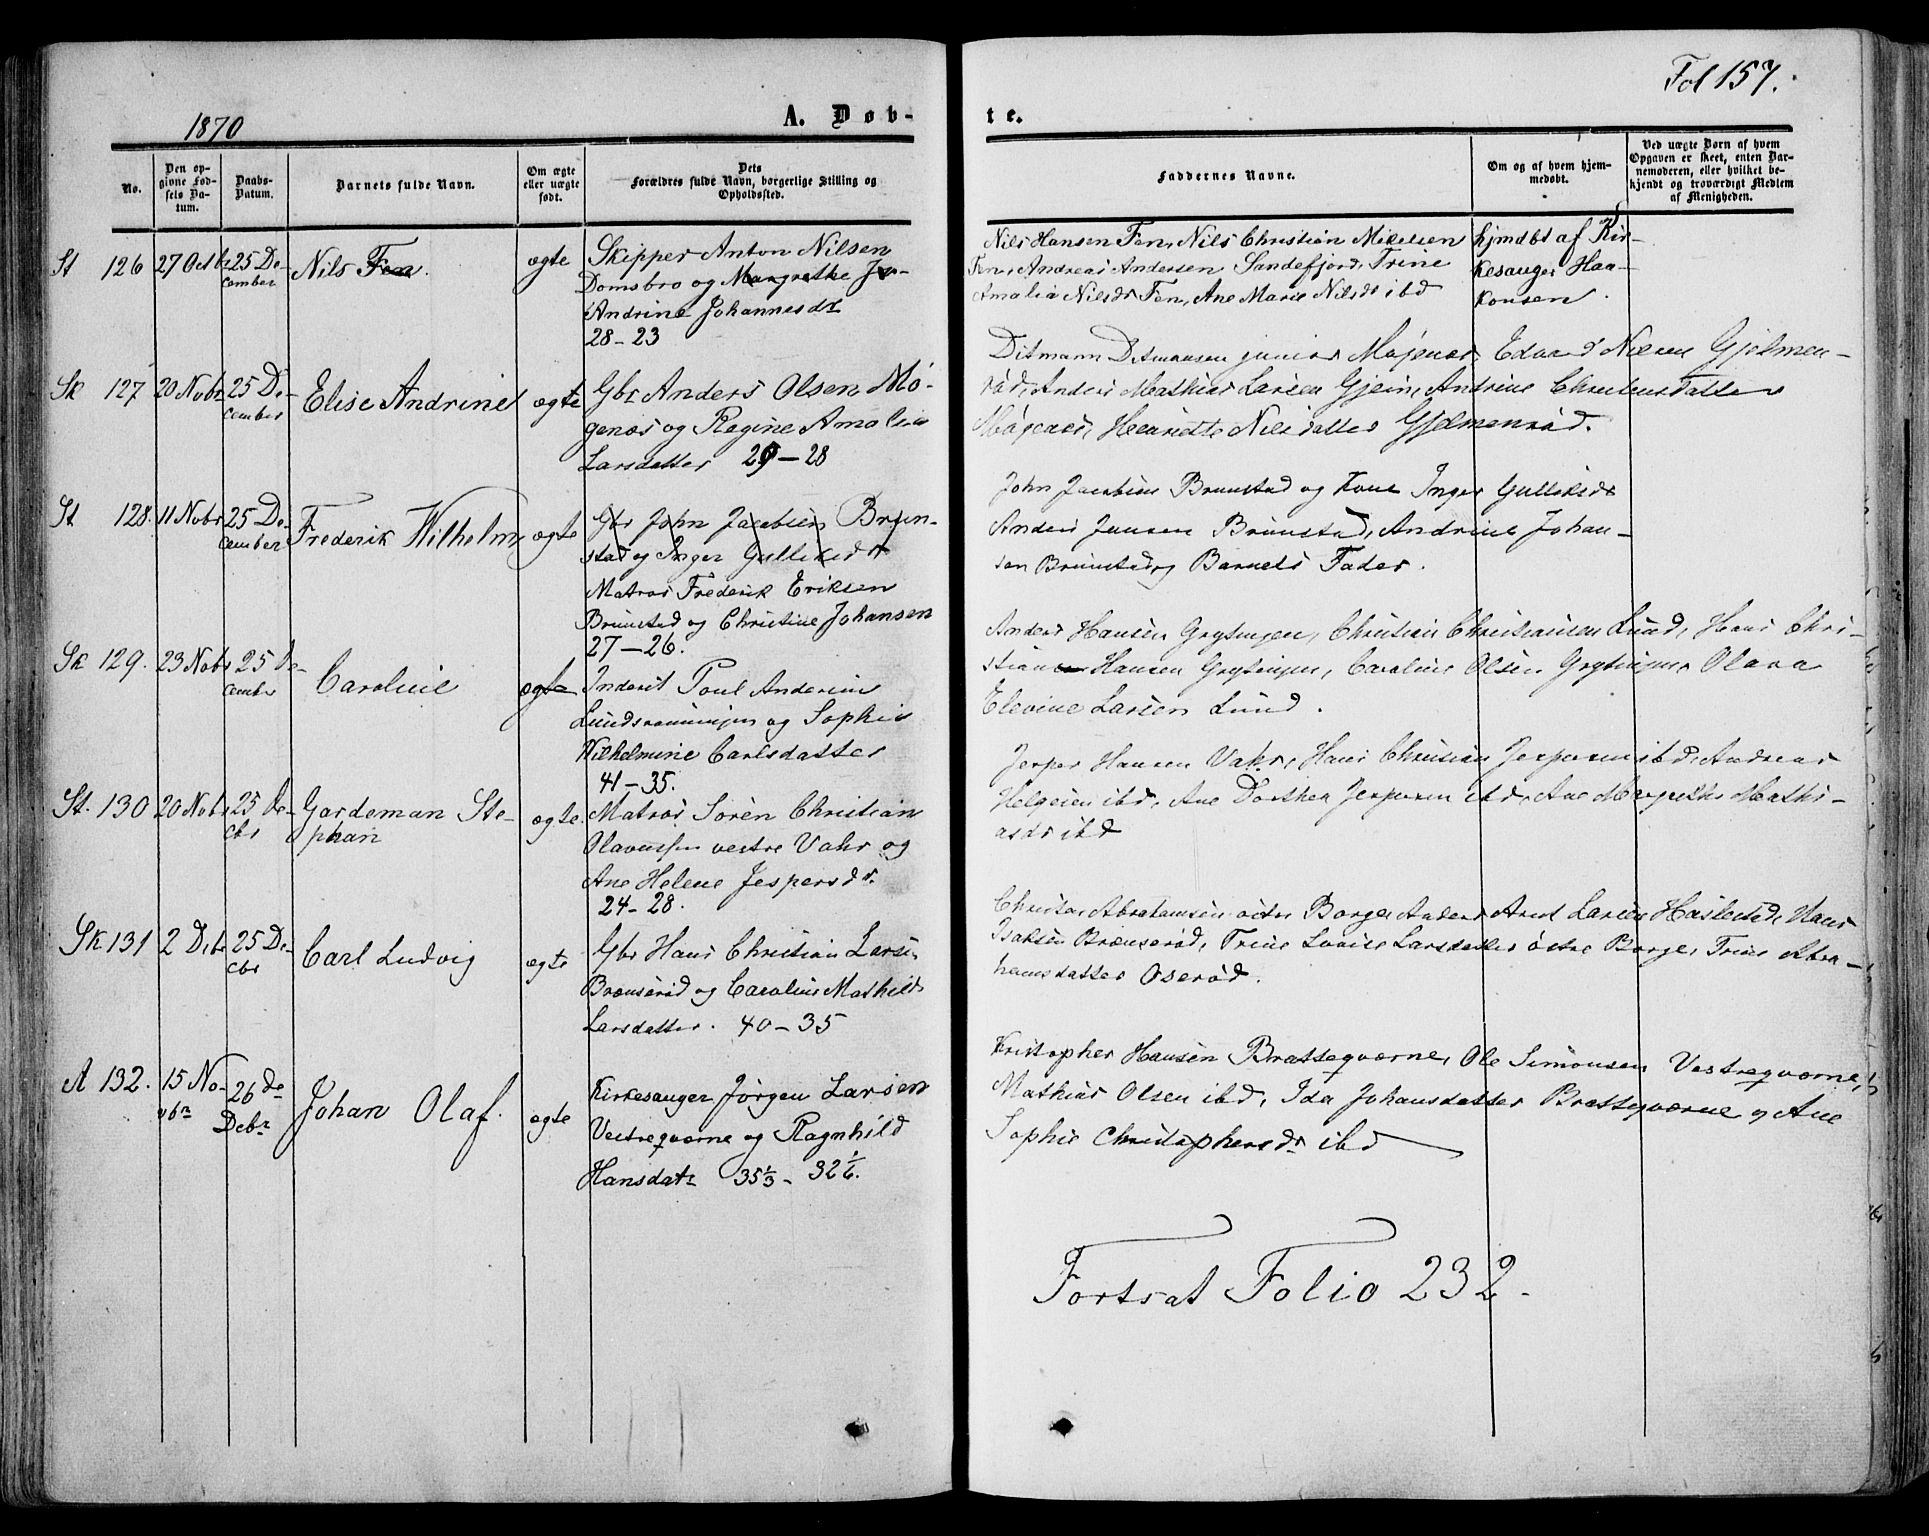 Fol 157.
1870
A. Døb-
te.
No.
Den op-
givne Fød-
sels Da-
tum.
Daabs-
Datum.
Barnets fulde Navn.
Om ægte
eller uægte
født.
Dets
Forældres fulde Navn, borgerlige Stilling og
Opholdssted.
Faddernes Navne.
Om og af hvem hjem-
medøbt.
Ved uægte Børn af hvem
Opgaven er skeet, enten Bar-
nemoderen, eller hvilket be-
kjendt og troværdigt Medlem
af Menigheden.
St 126 27 Octbr 25 De-
cember
Nils Fen.
ægte
Skipper Anton Nilsen
Domsbro og Margrethe
Andrine Johannesdt
28-23
Nils Hansen Fen, Nils Christian Mikelsen
Fen, Andreas Andersen Sandefjord, Trine
Amalia Nilsdr Fen, Ane Marie Nilsdr ibd
hjmdbt af Kir-
kesanger Haa-
konsen.
Sk 127 20 Nobr 25 De-
cember
Elise Andrine
ægte
Gbr Anders Olsen Mø-
genæs og Ragine Amalia
Larsdatter 29-28
Ditmann Ditmansen junior Møgenæs, Edvard Nilsen Gjelmen-
rød, Anders Mathias Larsen Gjein, Andrine Christensdatter
Møgenæs, Henriette Nilsdatter Gjelmenrød.
St 128. 11 Nobr 25 De-
cember
Frederik Wilhelm
ægte
Gbr John Jacobsen Brun-
stad og Inger Gulliksdr
Matros Frederik Eriksen
Brunstad og Christine Johansen
27-26.
John Jacobsen Brunstad og Kone Inger Gulliksdr
Anders Jansen Brunstad, Andrine Johan-
sen Brunstad og Barnets Fader.
Sk 129. 23 Nobr 25 De-
cember
Caroline
ægte
Inderst Poul Andersen
Lundsrønningen og Sophie
Wilhelmine Carlsdatter
41-35.
Anders Hansen Grytingen, Christian Christiansen Lund, Hans Chri-
stian Hansen Grytingen, Caroline Olsen Grytingen, Olava
Elevine Larsen Lund.
St. 130 20 Nobr 25 De-
cbr
Gardeman Ste-
phan
ægte.
Matros Soren Christian
Olavussen vestre Vahr og
Ane Helene Jespersdr.
24-28.
Jesper Hansen Vahr, Hans Christian Jespersen ibd, Andreas
Helgesen ibd, Ane Dorthea Jespersen ibd, Ane Margrethe Mathi-
asdr ibd
Sk 131 2 Debr 25 De-
cbr
Carl Ludvig
ægte
Gbr Hans Christian Larsen
Brænserød og Caroline Mathilde
Larsdatter. 40-35
Christen Abrahamsen østre Borge, Anders Arnt Larsen Haslestad, Hans
Isaksen Brænserød, Trine Lovise Larsdatter østre Borge, Trine Abra-
hamsdatter Oserød.
A 132. 15 No-
vbr
26 de
Debr
Johan Olaf.
ægte
Kirkesanger Jørgen Larsen
Vestreqværne og Ragnhild
Hansdatr 35 1/3 - 32 1/6.
Kristopher Hansen Bratteqværne, Ole Simonsen Vestreqværne,
Mathias Olsen ibd, Ida Johansdatter Bratteqværne og Ane
Sophie Christophersdr ibd
Fortsat Folio 232.